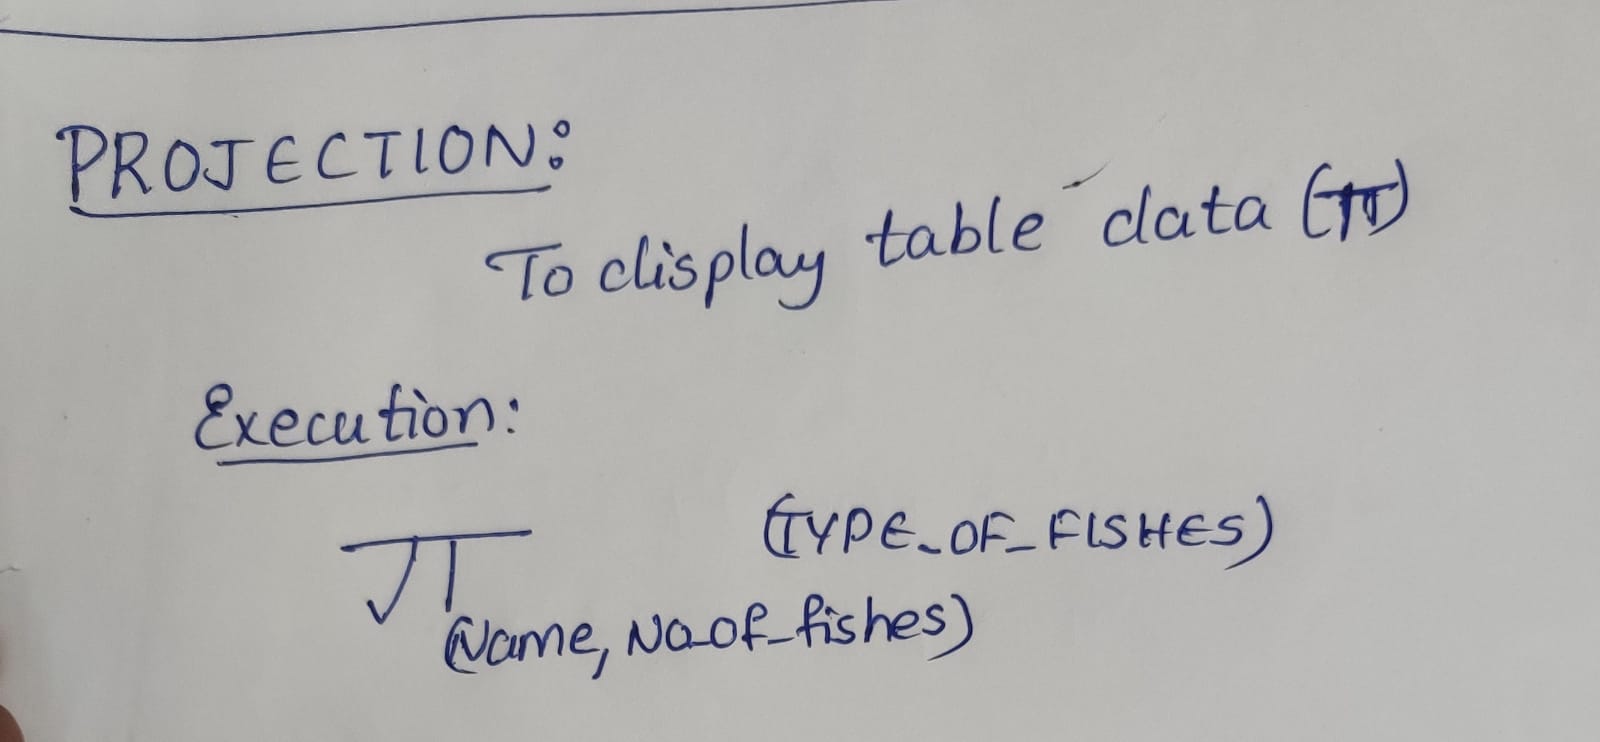 PROJECTION:
To display table data (π)
Execution:
π (Name, No_of_fishes) (TYPE_OF_FISHES)